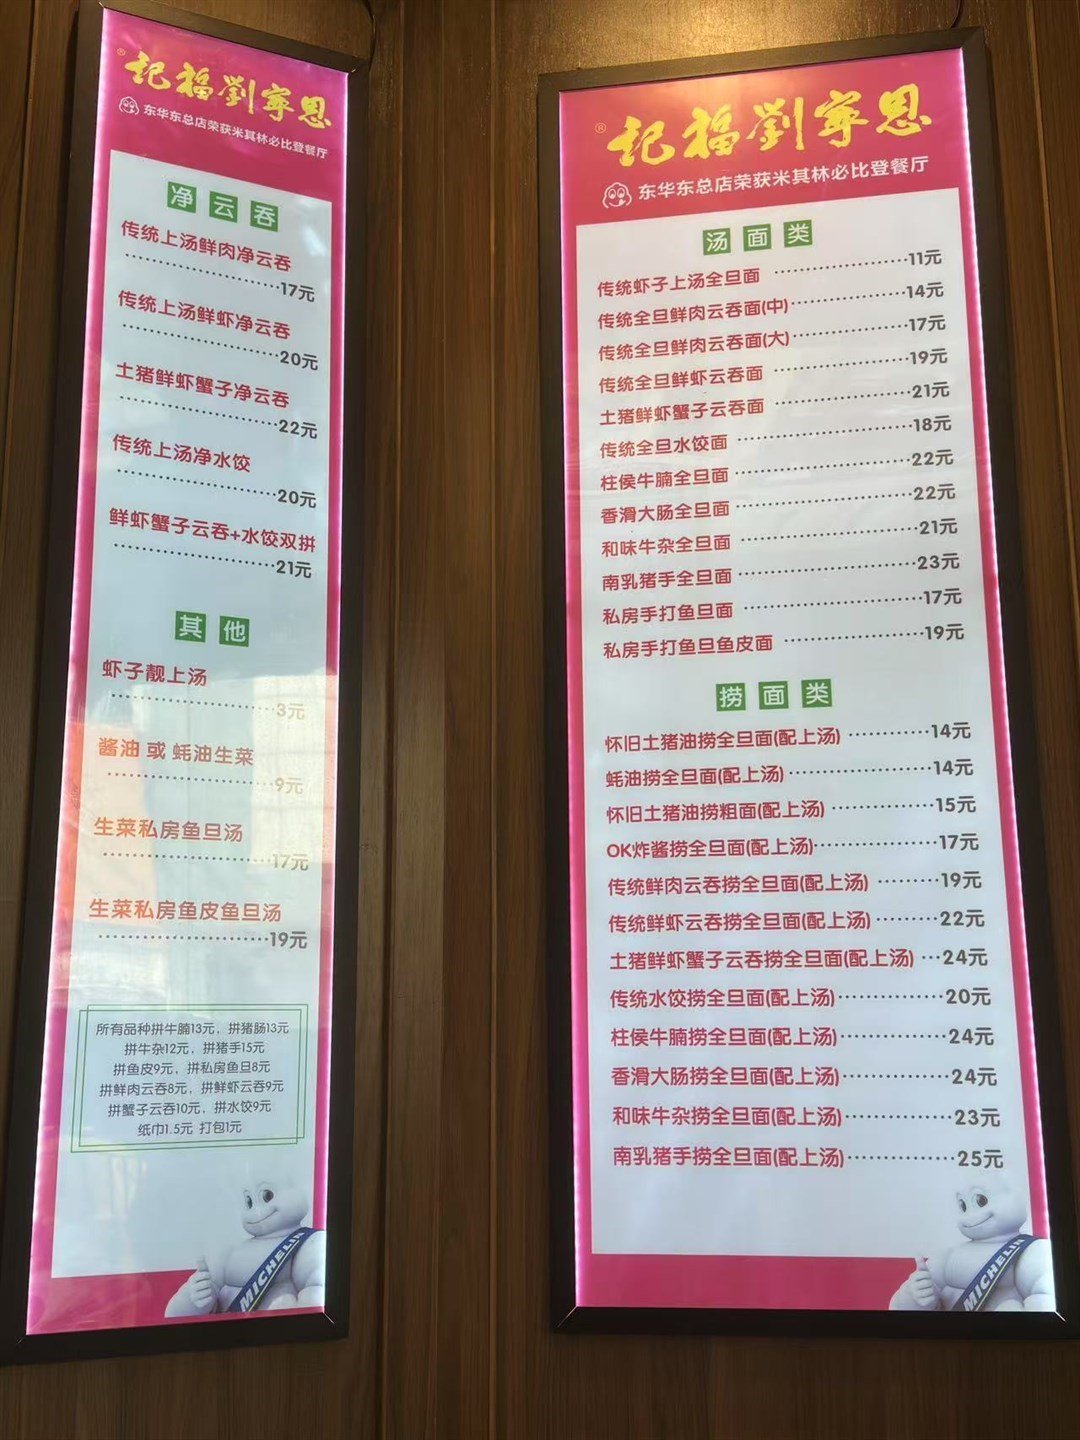 記福劉寧恩
®
东华东总店荣获米其林必比登餐厅
净云吞
传统上汤鲜肉净云吞
····················17元
传统上汤鲜虾净云吞
····················20元
土猪鲜虾蟹子净云吞
····················22元
传统上汤净水饺
····················20元
鲜虾蟹子云吞+水饺双拼
····················21元
其他
虾子靓上汤
····················3元
酱油 或 蚝油生菜
····················9元
生菜私房鱼旦汤
····················17元
生菜私房鱼皮鱼旦汤
····················19元
所有品种拼牛腩13元，拼猪肠13元
拼牛杂12元，拼猪手15元
拼鱼皮9元，拼私房鱼旦8元
拼鲜肉云吞8元，拼鲜虾云吞9元
拼蟹子云吞10元，拼水饺9元
纸巾1.5元 打包1元
MICHELIN
記福劉寧恩
®
东华东总店荣获米其林必比登餐厅
汤面类
传统虾子上汤全旦面 ················11元
传统全旦鲜肉云吞面(中)··············14元
传统全旦鲜肉云吞面(大)··············17元
传统全旦鲜虾云吞面 ················19元
土猪鲜虾蟹子云吞面 ················21元
传统全旦水饺面 ····················18元
柱侯牛腩全旦面 ····················22元
香滑大肠全旦面 ····················22元
和味牛杂全旦面 ····················21元
南乳猪手全旦面 ····················23元
私房手打鱼旦面 ····················17元
私房手打鱼旦鱼皮面 ················19元
捞面类
怀旧土猪油捞全旦面(配上汤) ··········14元
蚝油捞全旦面(配上汤)················14元
怀旧土猪油捞粗面(配上汤) ············15元
OK炸酱捞全旦面(配上汤)··············17元
传统鲜肉云吞捞全旦面(配上汤) ·······19元
传统鲜虾云吞捞全旦面(配上汤)········22元
土猪鲜虾蟹子云吞捞全旦面(配上汤) ···24元
传统水饺捞全旦面(配上汤)············20元
柱侯牛腩捞全旦面(配上汤)············24元
香滑大肠捞全旦面(配上汤)············24元
和味牛杂捞全旦面(配上汤)············23元
南乳猪手捞全旦面(配上汤)············25元
MICHELIN